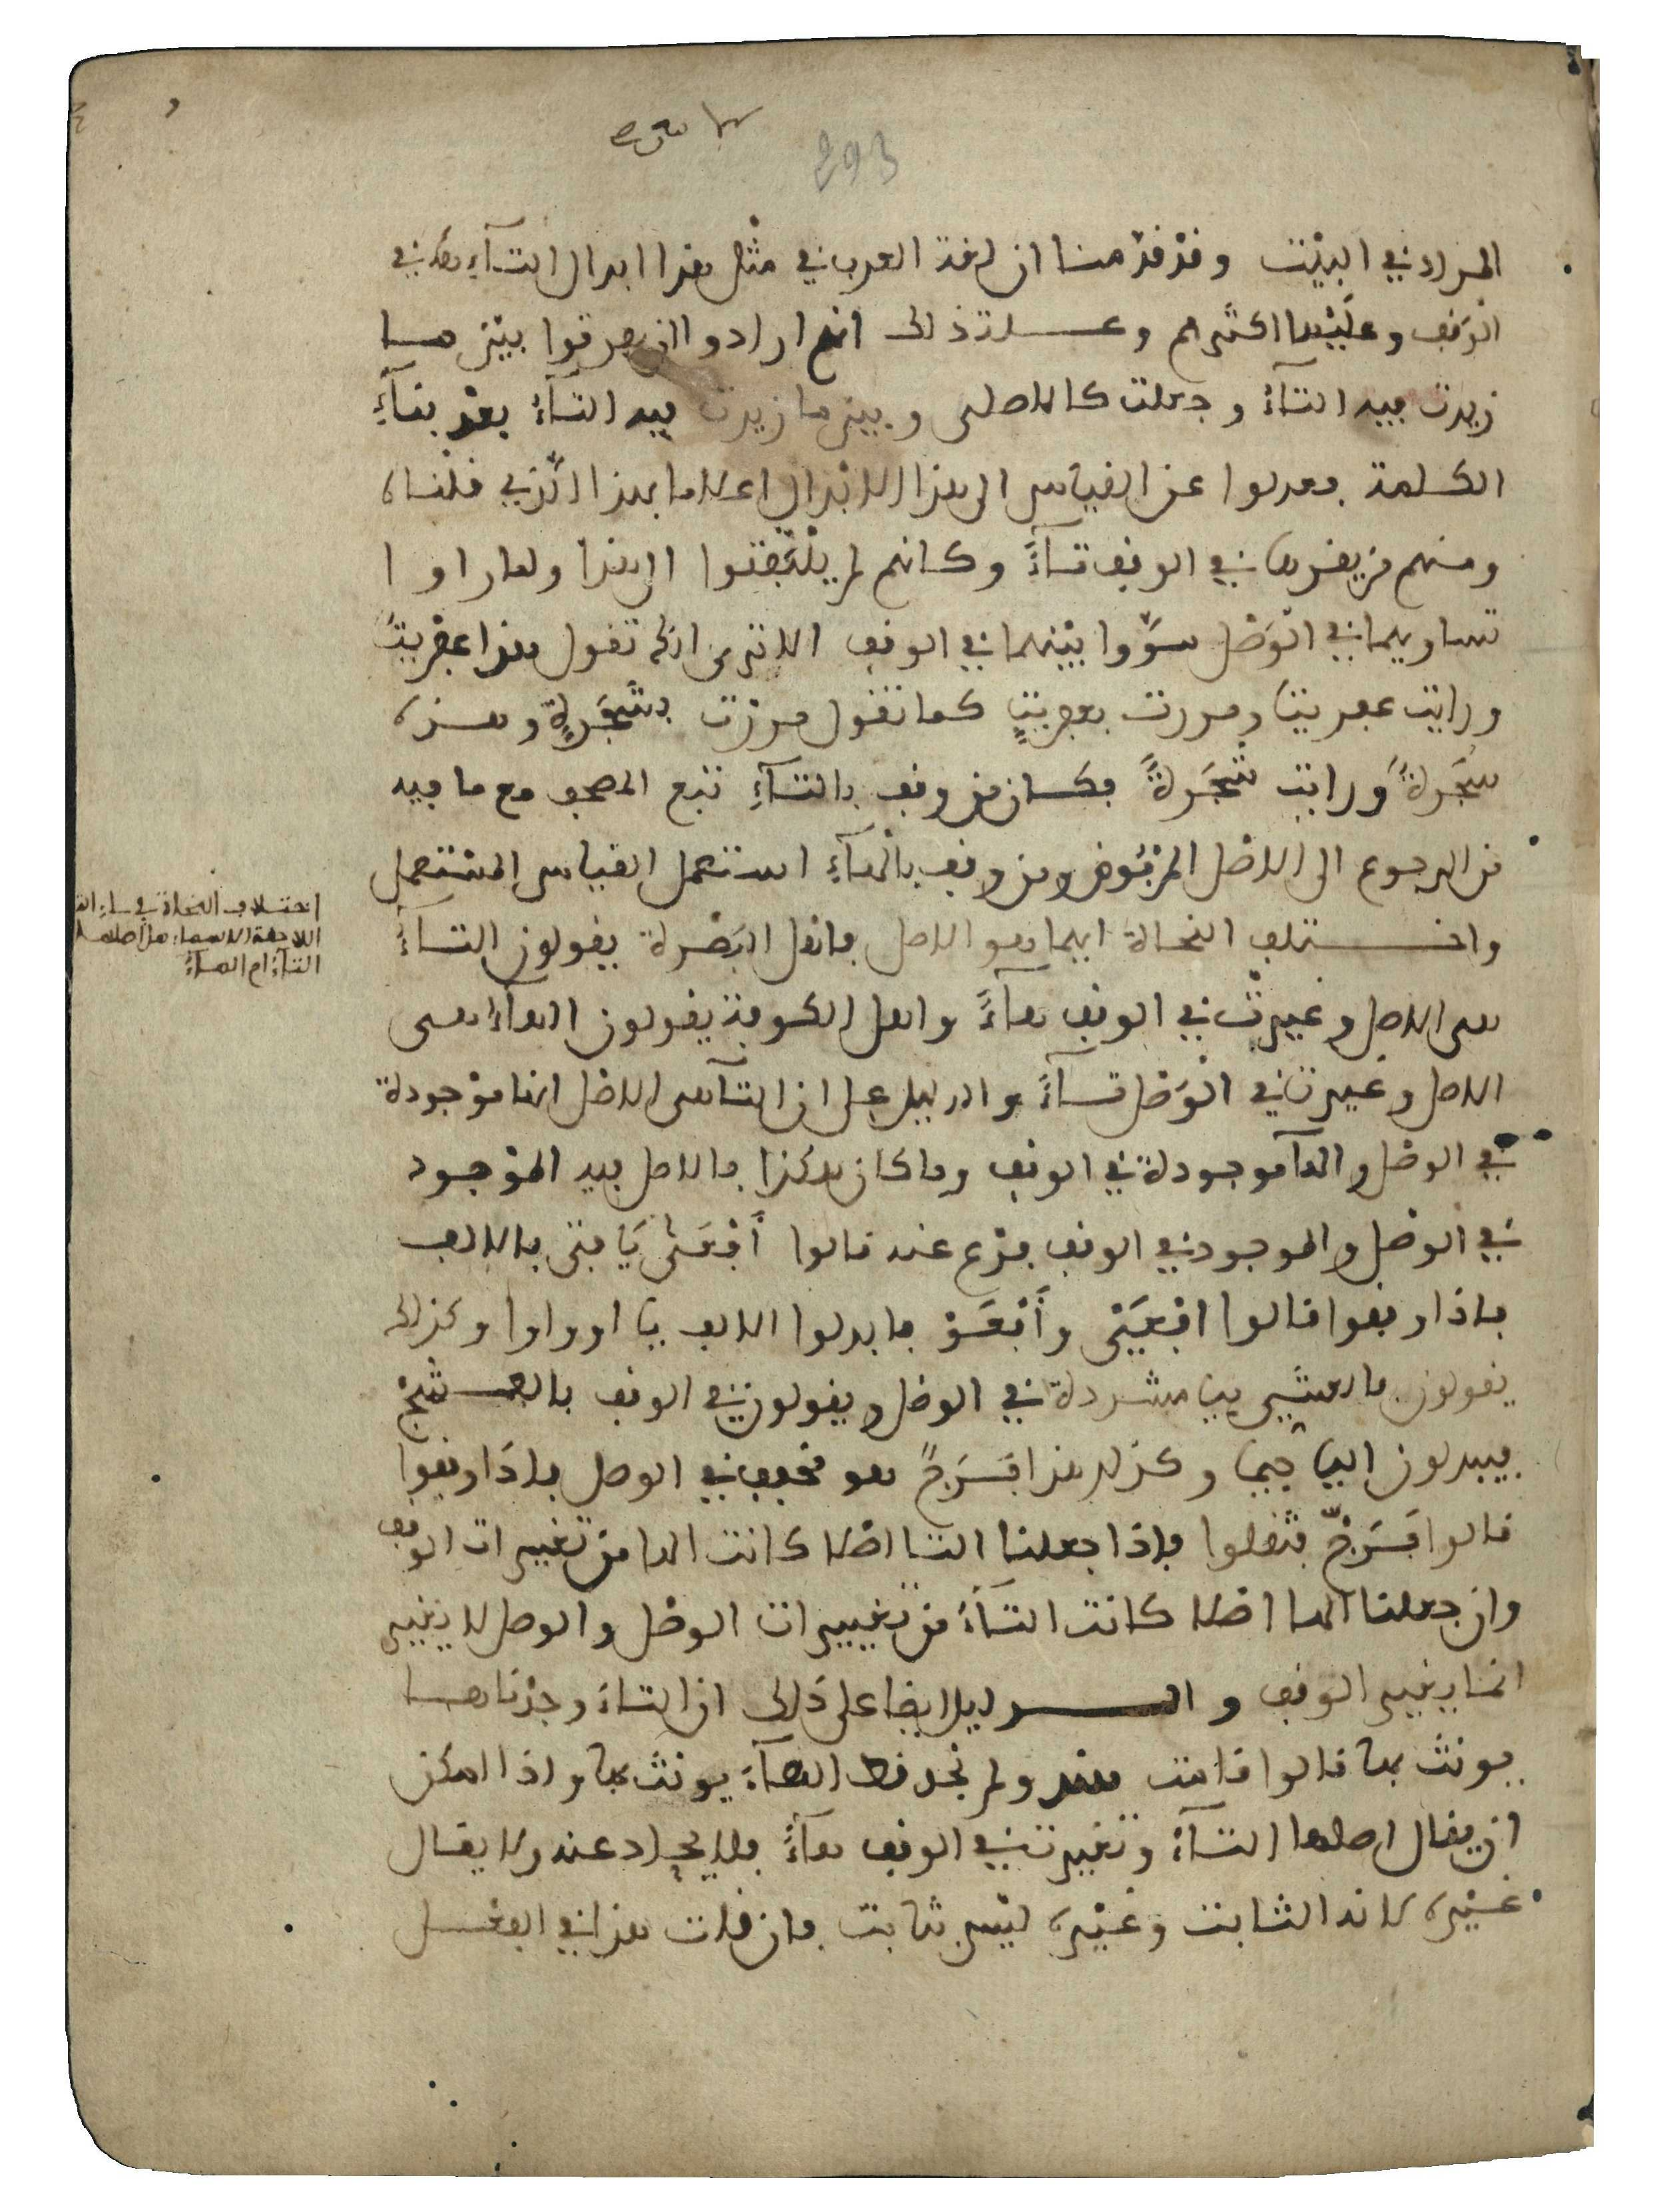 293
المراد في البيت وقد قدمنا ان لغة العرب في مثل هذا ابدال التآء هاء في
الوقف وعليها اكثرهم وعلة ذلك انهم ارادوا ان يفرقوا بين ما
زيدت فيه التآء وجعلت كالاصلي وبين ما زيدت فيه التآء بعد بنآء
الكلمة فعدلوا عن القياس الى هذا الابدال اعلاما بهذا الذي قلناه
ومنهم من يقرها في الوقف تآءً وكانهم لم يلتفتوا الى هذا ولما راوا
تساويهما في الوَصْل سوَّوا بينهما في الوقف الا ترى انك تقول هذا عفريتٌ
ورايت عفريتا ومررت بعفريتٍ كما تقول مررت بشَجَرةٍ وهذه
شَجَرةٌ ورايت شَجَرةً فكان من وقف بالتآءِ تبع المصحف مع ما فيه
من الرجوع الى الاصل المرفوض ومن وقف بالهآءِ استعمل القياس المستعمل
واختلف النحاة ايهما هو الاصل فاهل البَصْرة يقولون التآءُ
هى الاصل وغيرت في الوقف هآءً واهل الكوفة يقولون الهآء هى
الاصل وغيرت في الوَصْل تآءً والدليل على ان التآ هى الاصل انها موجودة
في الوصل والهآ موجودة في الوقف وما كان هكذا فالاصل فيه الموجود
في الوصل والموجود في الوقف فرع عنه قالوا أَفْعَى يَا فتى بالالف
فاذا وقفوا قالوا افْعَيْ وأَفْعَوْ فابدلوا الالف يا او واوا وكذلك
يقولون بالعشي بيا مشددة في الوصل ويقولون في الوقف بالعشج
فيبدلون اليا جيما وكذلك هذا فَرَجٌ هو مخفف في الوصل فاذا وقفوا
قالوا فَرَجّ فثقلوا فاذا جعلنا التا اصلا كانت الها من تغييرات الوقف
وان جعلنا الها اصلا كانت التآءُ من تغييرات الوصل والوصل لا يغيير
انما يغيير الوقف والدليل ايضا على ذلك ان التاءَ وجدناها
يونث بها قالوا قامت هند ولم نجد قط الهآءَ يونث بها واذا امكن
ان يقال اصلها التآءُ وتغيرت في الوقف هآءً فلا يحاد عنه ولا يقال
غيره لانه الثابت وغَيْره ليس بثابت فان قلت هذا في الفعل
اختلاف النحاة في
اللاحقة الاسماء هل اصلها
التآءُ ام الهآءُ